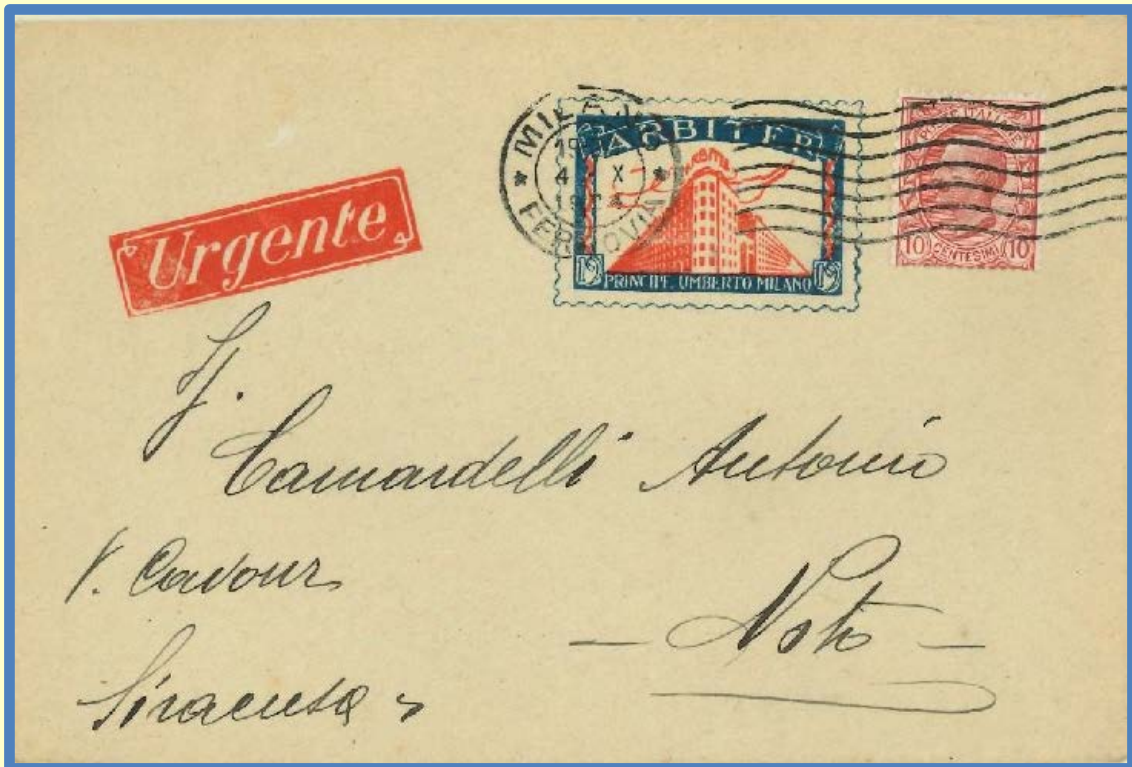 MILANO
19
4 X
FERROVIA
ARBITER
19 PRINCIPE UMBERTO MILANO 19
POSTE ITALIANE
10 CENTESIMI 10
Urgente
Sj.
Camardelli Antonio
V. Cavour
- Noto -
Siracusa